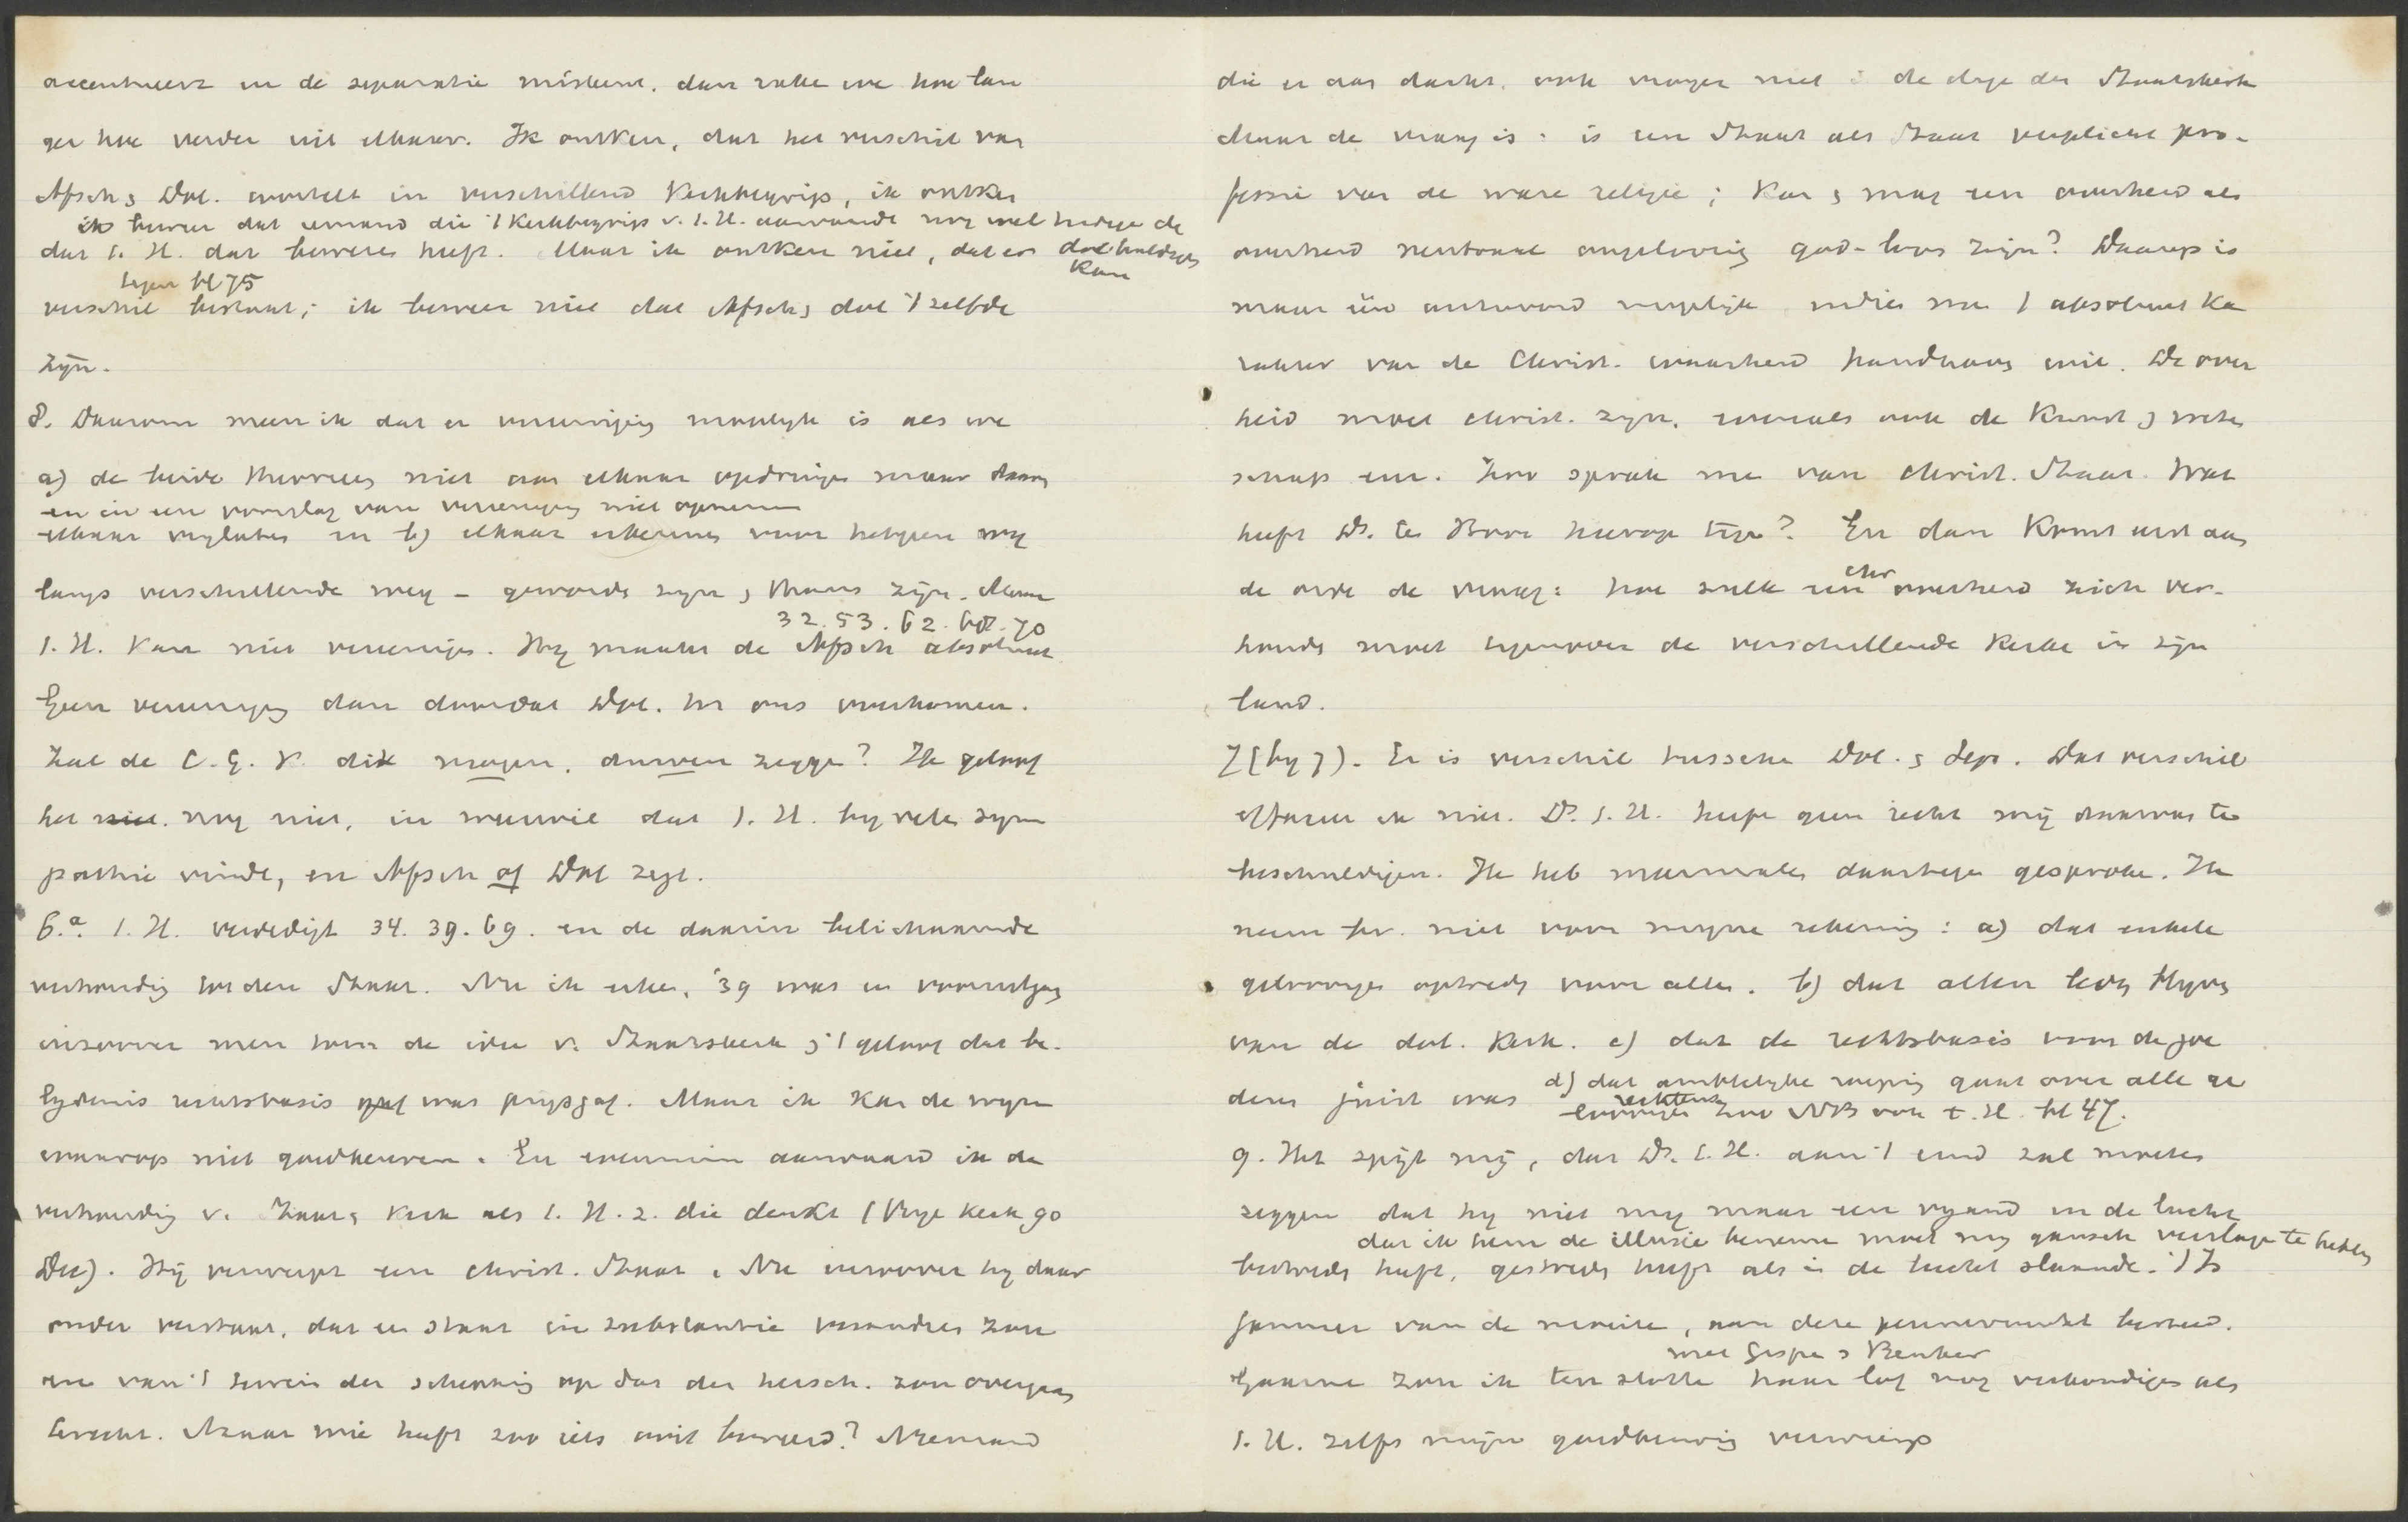 accentueert en de separatie miskent, dan rake we hoe lan
ger hoe verder uit elkaar. Ik ontken, dat het verschil van
Afsch & Dol. wortelt in verschillend Kerkbegrip, ik ontken
ik beweer dat iemand die 't Kerkbegrip v. t. H. aanvaardt nog wel heden de
dat t. H. dat bewezen heeft. Maar ik ontken niet, dat er dol huldigen
kan
tegen bl 75
verschil bestaat; ik beweer niet dat Afsch & dol 't zelfde
zijn.
8. Daarom meen ik dat er vereeniging mogelijk is als we
a) de beide theorieën niet aan elkaar opdringen maar daarin
en in een voorslag van vereeniging niet opnemen
elkaar vrijlaten en b) elkaar erkennen voor hetgeen wij
langs verschillende weg – geworden zijn & thans zijn. Maar
32. 53. 62. 68. 70
t. H. kan niet vereenigen. Hij maakt de Afsch absoluut
Geen vereeniging dan doordat Dol. tot ons overkomen.
Zal de C. G. K. dit mogen, durven zeggen? Ik geloof
het niet. nog niet, in weerwil dat t. H. bij velen sym
pathie vindt, en Afsch of Dol zegt.
6.a. t. H. verdedigt 34. 39. 69. en de daarin belichaamde
verhouding tot den Staat. Nu ik erken, '39 was in vooruitgang
inzoover men toen de idee v. Staatskerk & 't geloof dat be-
lydenis rechtsbasis was prijsgaf. Maar ik kan de wijze
waarop niet goedkeuren. En evenmin aanvaard ik de
verhouding v. Staat & Kerk als t. H. z. die denkt (Vrije Kerk 90
Dec). Hij verwerpt een christ. Staat. Nu inzoover hij daar
onder verstaat, dat een staat in substantie veranderen zou
en van 't terrein der schepping op dat der hersch. zou overgaan
terecht. Maar wie heeft zoo iets ooit beweerd? Niemand
die er aan dacht, ook vroeger niet in de dage der Staatskerk
Maar de vraag is: is een Staat als Staat verplicht pro-
fessie van de ware religie; kan & mag een overheid als
overheid neutraal ongeloovig god-loos zijn? Daarop is
maar één antwoord mogelijk indien men 't absoluut ka
rakter van de Christ. waarheid handhaven wil. De over
heid moet christ. zijn, evenals ook de kunst & weten
schap enz. Zoo sprak men van christ. Staat. Wat
heeft Ds. te Hoor hierop tegen? En dan komt eerst aan
de orde de vraag: hoe zulk een chr overheid zich ver-
houden moet tegenover de verschillende kerken in zijn
land.
7 (bij 7). Er is verschil tusschen Dol. & Sepr. Dat verschil
effaceer ik niet. Ds. t. H. heeft geen recht mij daarvan te
beschuldigen. Ik heb meermalen daartegen gesproken. Ik
neem bv. niet voor mijne rekening: a) dat enkele
geloovigen optreden voor allen. b) dat allen leden blijven
van de dol. Kerk. c) dat de rechtsbasis voor de goe
deren juist was d) dat ambtelijke roeping gaat over alle ge
loovigen rechtens zoo NB ook t. H. bl 47.
9. Het spijt mij, dat Ds. t. H. aan 't eind zal moeten
zeggen dat hij niet mij maar een vijand in de lucht
dat ik hem de illusie benemen moet mij gansch verslagen te hebben
bestreden heeft, gestreden heeft als in de lucht slaande. 't Is
jammer van de moeite, aan deze pennevrucht besteed.
met Gispen & Beuker
Gaarne zou ik ten slotte haar lof nog verkondigen als
t. H. zelfs mijn goedkeuring verwierp